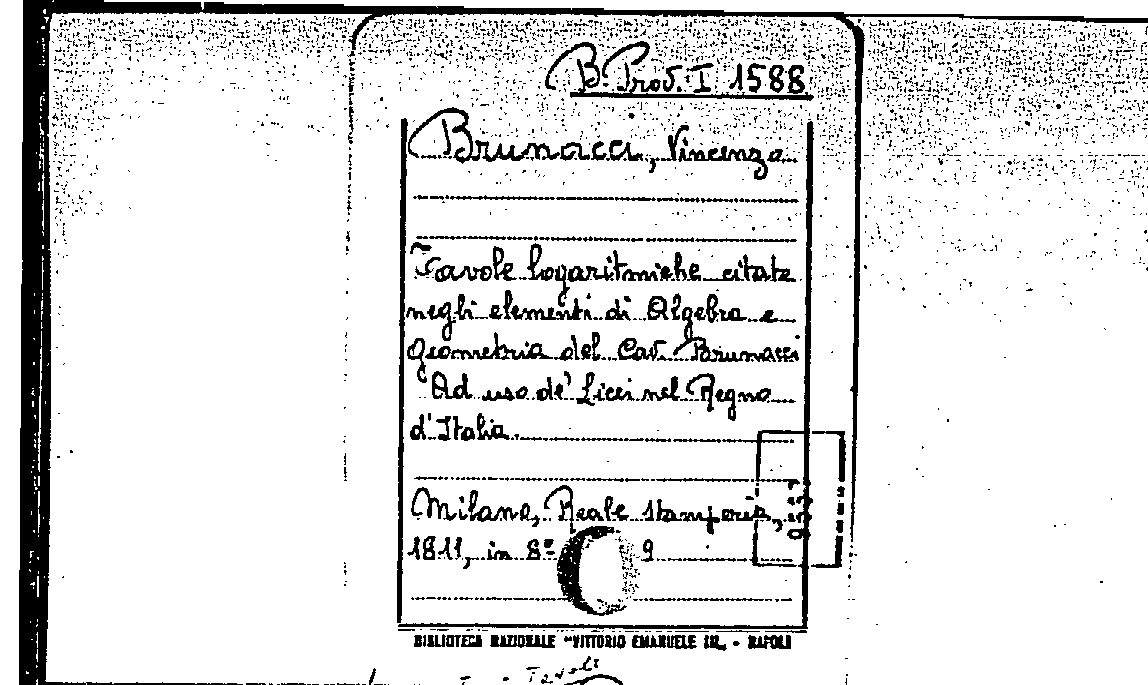 B. Prov. I 1588
Brunacci, Vincenzo
Tavole logaritmiche citate
negli elementi di Algebra e
geometria del Cav. Brunacci
Ad uso de' Licei nel Regno
d'Italia.
Milano, Reale Stamperia,
1811, in 8º 9
BIBLIOTECA NAZIONALE "VITTORIO EMANUELE III" - NAPOLI